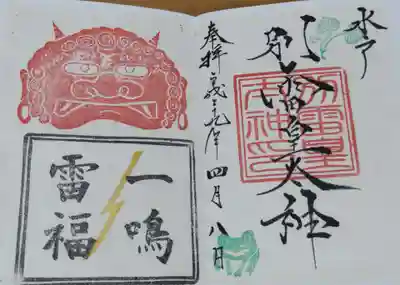 水戸
別雷皇太神
別雷皇
太神印
奉拝
四月八日
一鳴
雷福